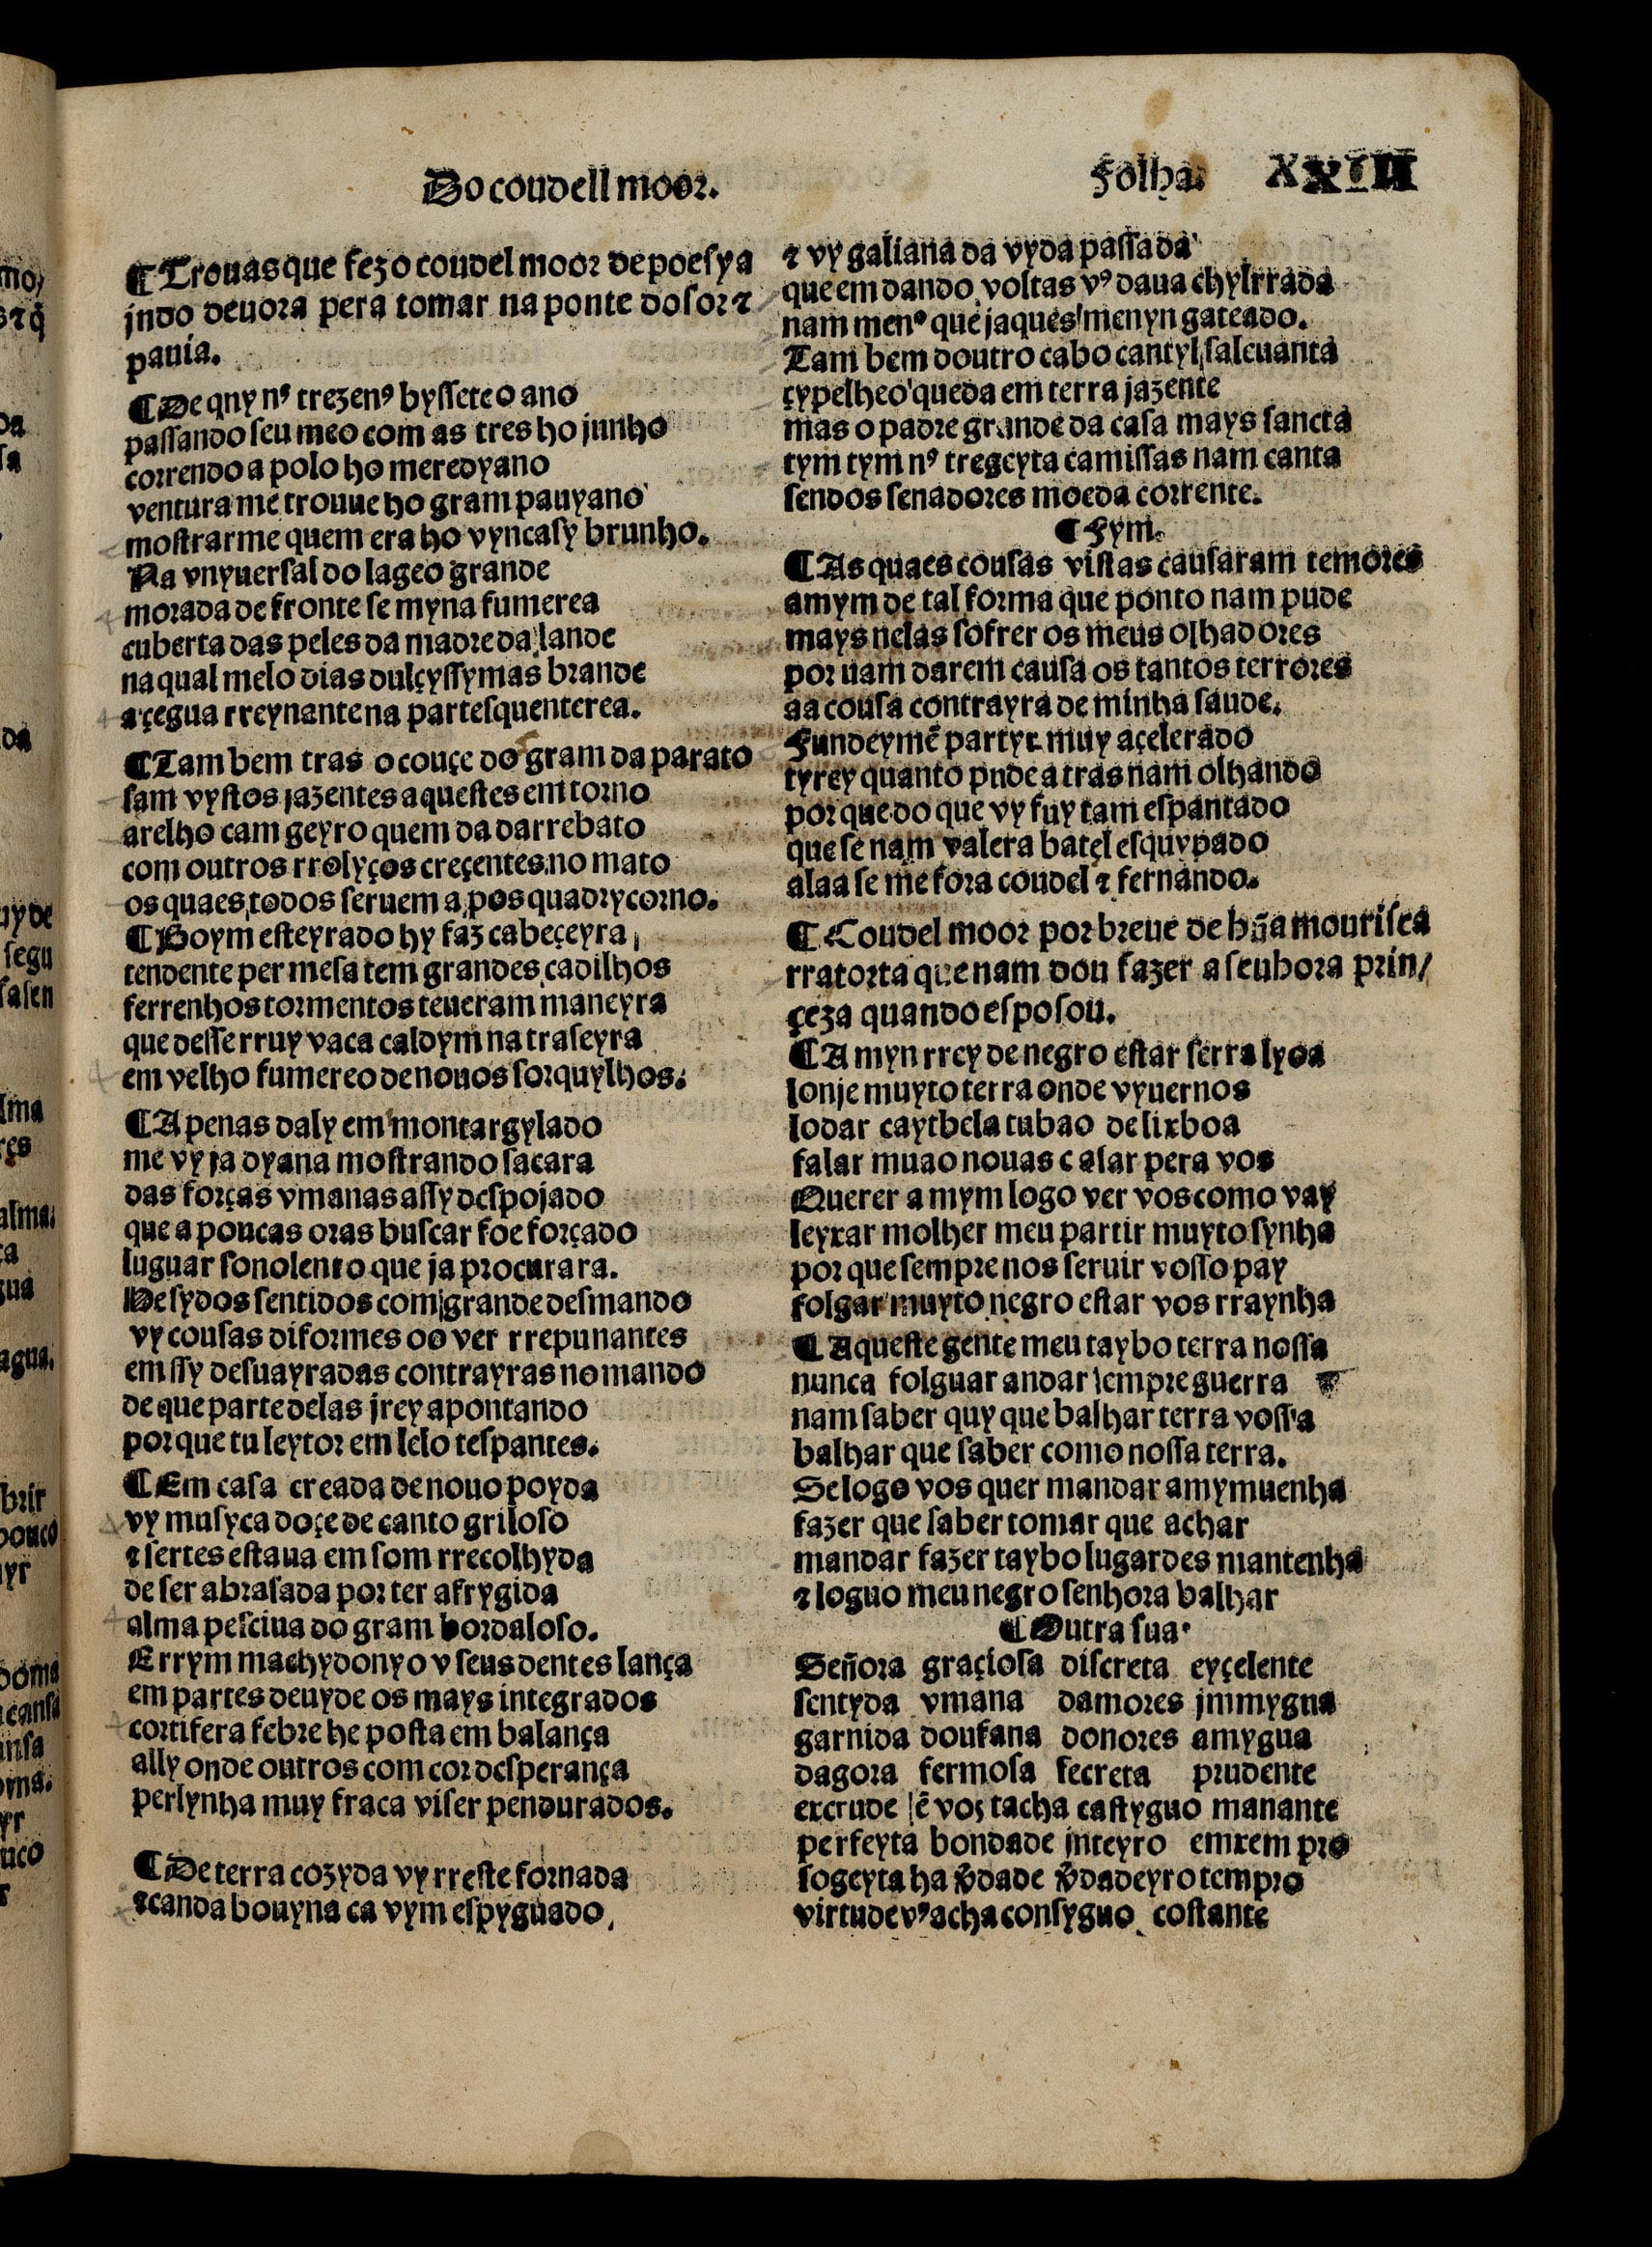 Do coudell moor.
Folha. XXIII
¶ Trouas que fez o coudel moor de poesya
jndo deuora pera tomar na ponte do sor ⁊
pauia.
¶ De qny nꝰ trezenꝰ bysseteo ano
passando seu meo com as tres ho junho
correndo a polo ho meredyano
ventura me trouue ho gram pauyano
mostrarme quem era ho vyncasy brunho.
Na vnyuersal do lageo grande
morada de fronte se myna fumerea
cuberta das peles da madre da lande
na qual melo dias dulçyssymas brande
a çegua rreynante na partesquenterea.
¶ Tam bem tras o couçe do gram da parato
sam vystos jazentes aquestes em torno
arelho cam geyro quem da darrebato
com outros rrolyços creçentes no mato
os quaes todos seruem a pos quadrycorno.
¶ Boym esteyrado hy faz cabeçeyra
tendente per mesa tem grandes cadilhos
ferrenhos tormentos teueram maneyra
que desse rruy vaca caldym na traseyra
em velho fumereo de nouos sorquylhos.
¶ A penas daly em montargylado
me vy ja dyana mostrando sa cara
das forças vmanas assy despojado
que a poucas oras buscar foe forçado
luguar sonolento que ja procurara.
Desydos sentidos com grande desmando
vy cousas diformes oo ver rrepunantes
em ssy desuayradas contrayras no mando
de que parte delas jrey apontando
por que tu leytor em lelo tespantes.
¶ Em casa creada de nouo poyda
vy musyca doçe de canto griloso
⁊ sertes estaua em som rrecolhyda
de ser abrasada por ter afrygida
alma pesciua do gram bordaloso.
Errym machydonyo v seus dentes lança
em partes deuyde os mays integrados
cortifera febre he posta em balança
ally onde outros com cor desperança
per lynha muy fraca viser pendurados.
¶ De terra cozyda vy rreste fornada
⁊ canda bouyna ca vym espyguado,
⁊ vy galiana da vyda passada
que em dando voltas vꝰ daua chylrrada
nam menꝰ que jaques menyn gateado.
Tam bem doutro cabo cantyl salcuanta
çypelheo queda em terra jazente
mas o padre grande da casa mays sancta
tym tym nꝰ tregeyta camissas nam canta
sendos senadores moeda corrente.
¶ Fym.
¶ As quaes cousas vistas causaram temores
amym de tal forma que ponto nam pude
mays nelas sofrer os meus olhadores
por nam darem causa os tantos terrores
aa cousa contrayra de minha saude.
Fundeymẽ partyr muy açelerado
tyrey quanto pude a tras nam olhando
por que do que vy fuy tam espantado
que se nam valera batel esquypado
alaa se me fora coudel ⁊ fernando.
¶ Coudel moor por breue de hũa mourisca
rratorta que nam dou fazer a senhora prin/
çeza quando esposou.
¶ A myn rrey de negro estar serra lyoa
lonje muyto terra onde vyuernos
lodar caytbela tubao de lixboa
falar muao nouas casar pera vos
Querer a mym logo ver vos como vay
leyxar molher meu partir muyto synha
por que sempre nos seruir vosso pay
folgar muyto negro estar vos rraynha
¶ Aqueste gente meu taybo terra nossa
nunca folguar andar sempre guerra
nam saber quy que balhar terra vossa
balhar que saber como nossa terra.
Se logo vos quer mandar amymuenha
fazer que saber tomar que achar
mandar fazer taybo lugar des mantenha
⁊ loguo meu negro senhora balhar
¶ Outra sua.
Señora graçiosa discreta eyçelente
sentyda vmana damores jmmygna
garnida doufana donores amygua
dagora fermosa secreta prudente
excrude ẽ vos tacha castyguo manante
perfeyta bondade jnteyro emxempro
sogeyta ha v̄dade v̄dadeyro tempro
virtude vꝰ acha consyguo costante